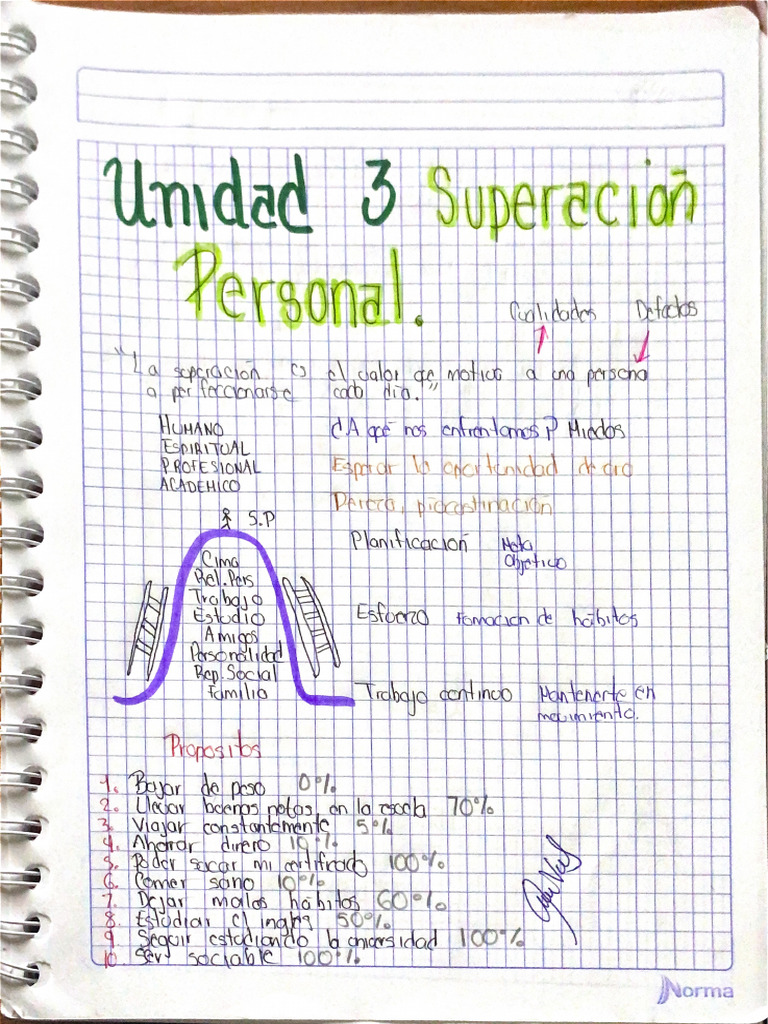 Unidad 3 Superación
Personal.
Cualidades Defectos
"La superación es el valor que motiva a una persona
a perfeccionarse cada día."
HUMANO
ESPIRITUAL
PROFESIONAL
ACADEMICO
¿A qué nos enfrentamos? Miedos
Esperar la oportunidad de oro
Pereza, procastinación
S.P
Cima
Rel. Pers
Trabajo
Estudio
Amigos
Personalidad
Rep. Social
familia
Planificación Meta
Objetivo
Esfuerzo Formación de hábitos
Trabajo continuo Mantenerte en
movimiento.
Propositos
1. Bajar de peso 0%
2. Llevar buenas notas en la escuela 70%
3. Viajar constantemente 5%
4. Ahorrar dinero 10%
5. Poder sacar mi certificado 100%
6. Comer sano 10%
7. Dejar malos hábitos 60%
8. Estudiar el ingles 50%
9. Seguir estudiando la universidad 100%
10. Ser sociable 100%
Norma